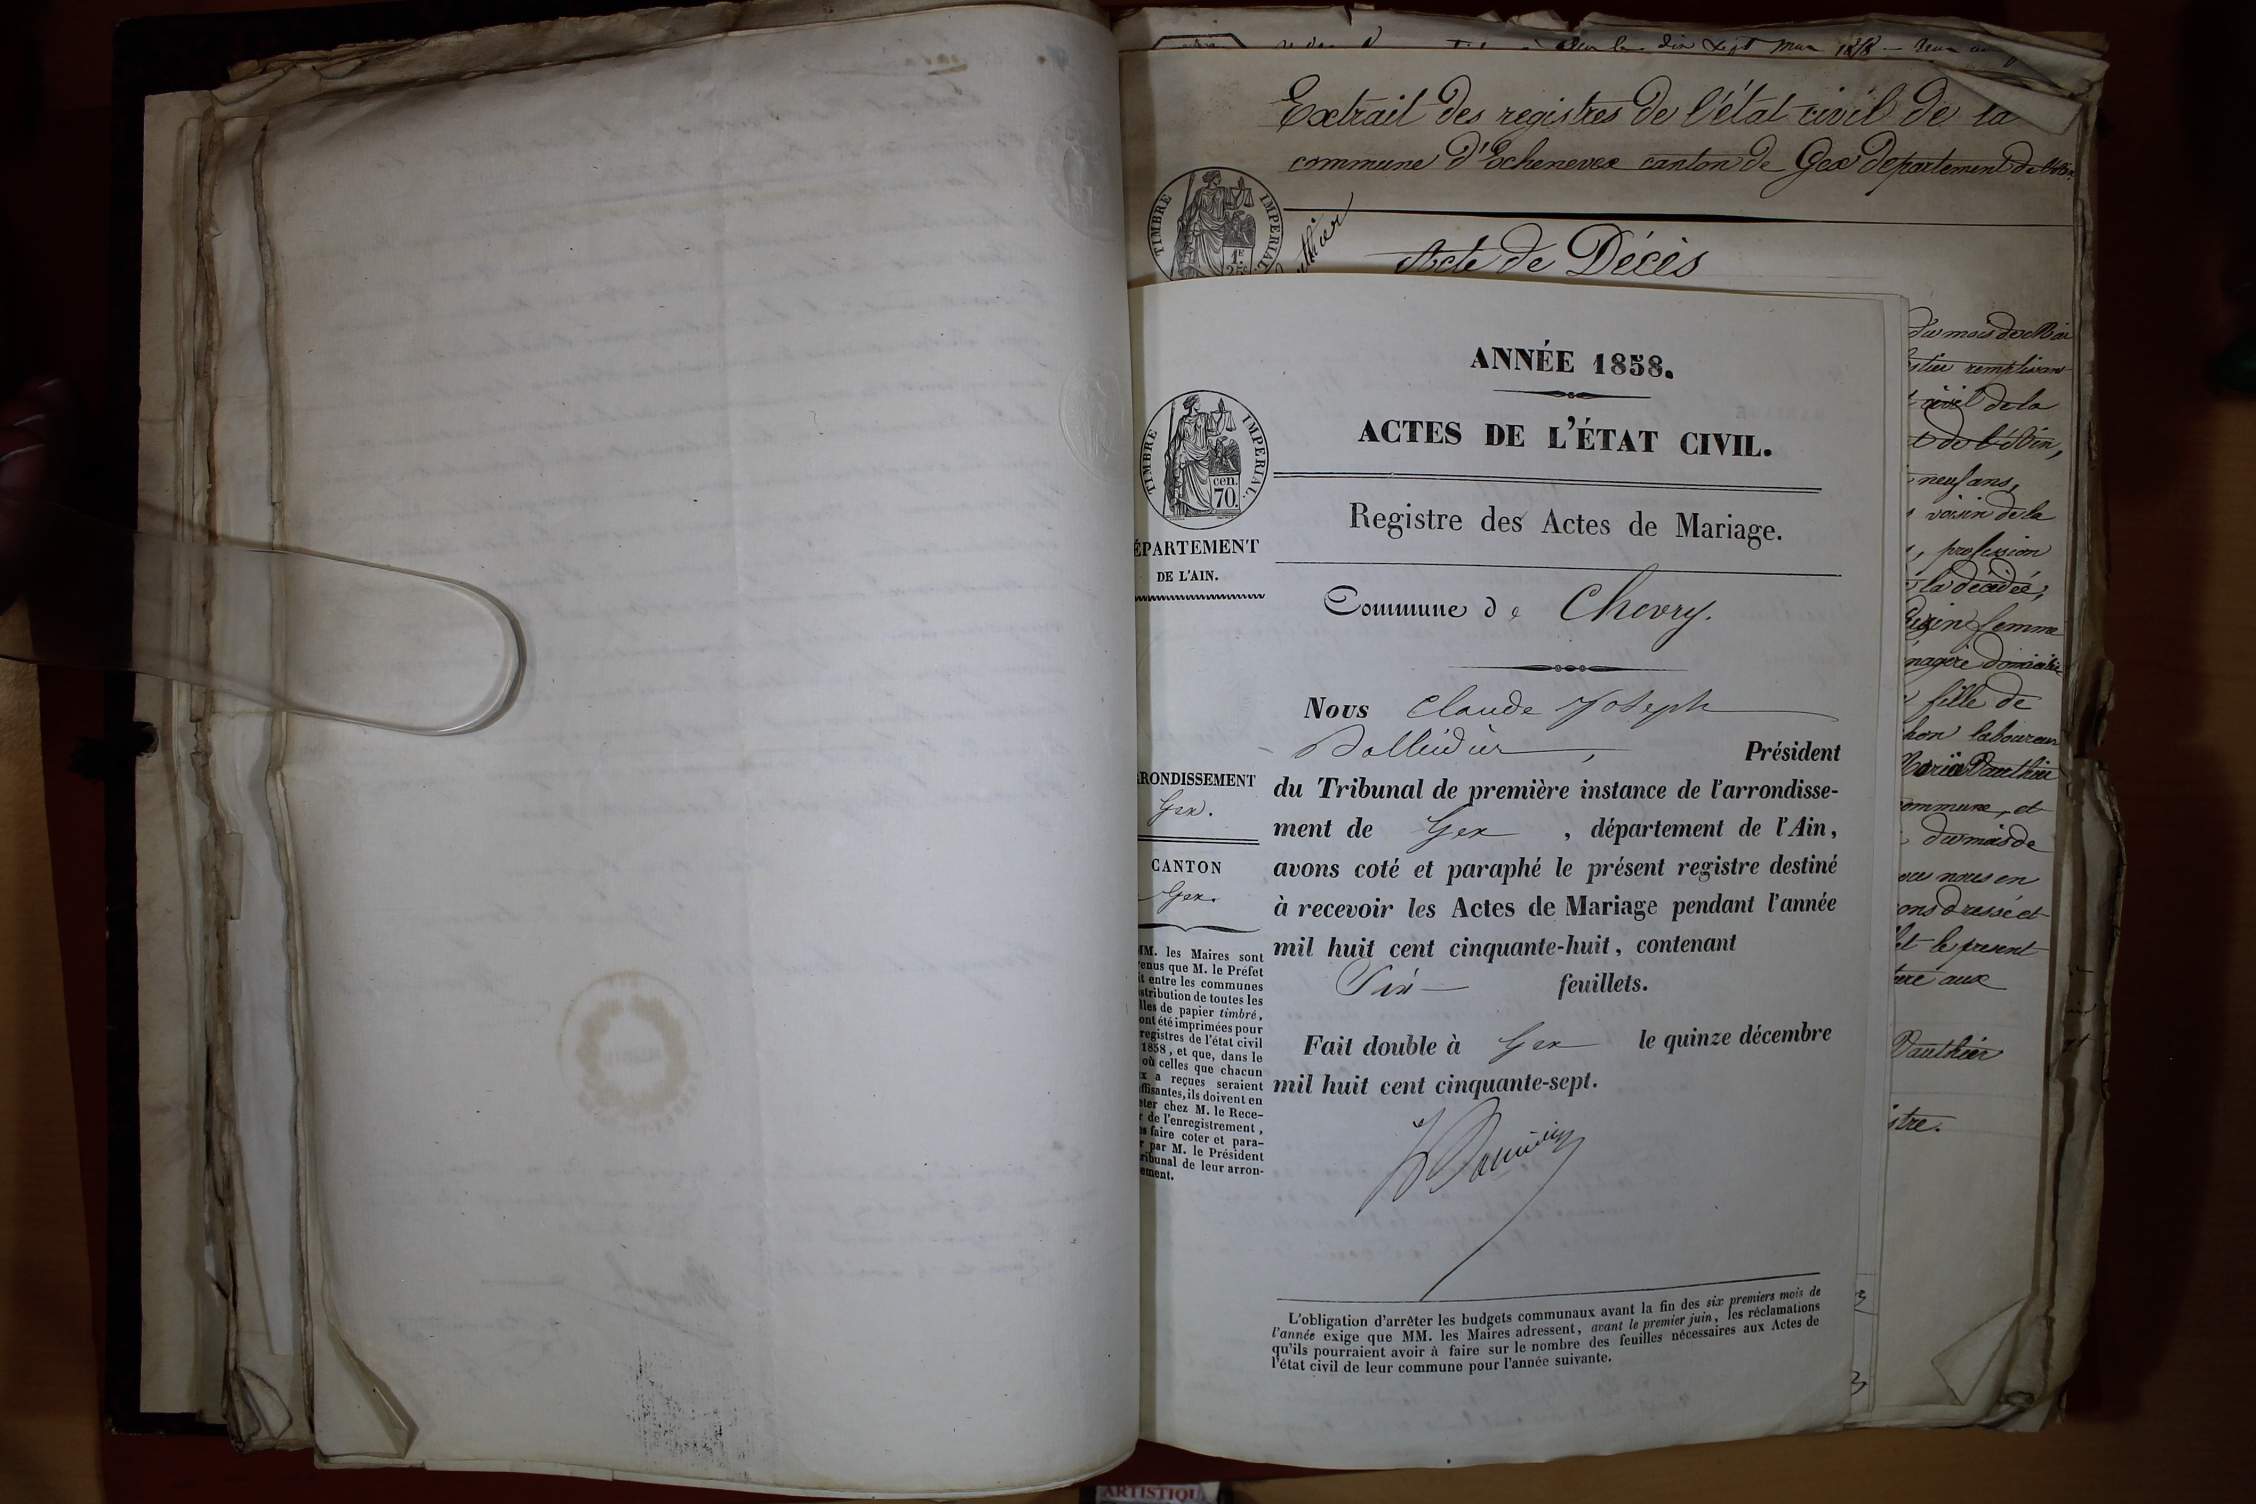 Extrait des registres de l'état civil de la
commune d'Echenevex canton de Gex département de l'Ain
Acte de Décès
TIMBRE IMPERIAL.
1F.
25c
ANNÉE 1858.
ACTES DE L'ÉTAT CIVIL.
TIMBRE IMPERIAL.
cen.
70.
Registre des Actes de Mariage.
ÉPARTEMENT
DE L'AIN.
Commune de Chevry.
Nous Claude Joseph
Président
du Tribunal de première instance de l'arrondisse-
ment de Gex, département de l'Ain,
avons coté et paraphé le présent registre destiné
à recevoir les Actes de Mariage pendant l'année
mil huit cent cinquante-huit, contenant
Six feuillets.
Fait double à Gex le quinze décembre
mil huit cent cinquante-sept.
RRONDISSEMENT
Gex.
CANTON
Gex.
MM. les Maires sont
enus que M. le Préfet
it entre les communes
stribution de toutes les
lles de papier timbré,
ont été imprimées pour
registres de l'état civil
1858, et que, dans le
où celles que chacun
x a reçues seraient
ffisantes, ils doivent en
ter chez M. le Rece-
r de l'enregistrement,
s faire coter et para-
r par M. le Président
ribunal de leur arron-
ement.
L'obligation d'arrêter les budgets communaux avant la fin des six premiers mois de
l'année exige que MM. les Maires adressent, avant le premier juin, les réclamations
qu'ils pourraient avoir à faire sur le nombre des feuilles nécessaires aux Actes de
l'état civil de leur commune pour l'année suivante.
du mois de Mai
remplissant
civil de la
t de l'Ain,
neuf ans,
voisin de la
, profession
la décédée,
femme
nagère domiciliée
fille de
hon laboureur
Maria Vauthier
commune, et
du mois de
nous en
ons dressé et
et le présent
aux
Vauthier
istre.
ARTISTIQU